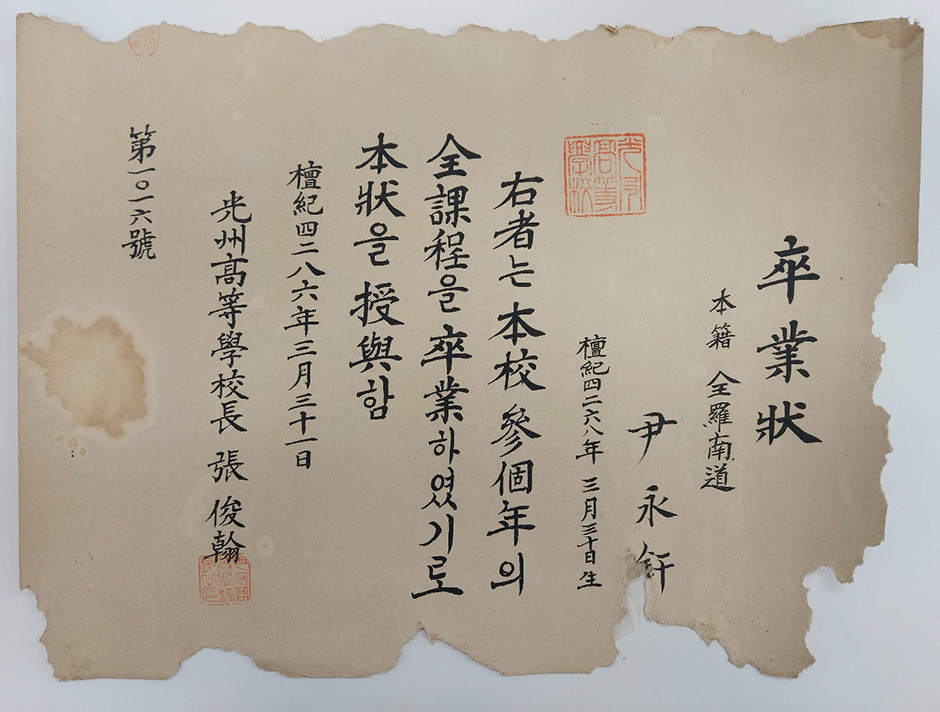 卒業狀
本籍 全羅南道
尹永
檀紀四二六八年 三月三十日生
右者는本校參個年의
全課程을卒業하였기로
本狀을授與함
檀紀四二八六年三月三十一日
光州高等學校長 張俊翰
第一〇一六號
光州高等學校